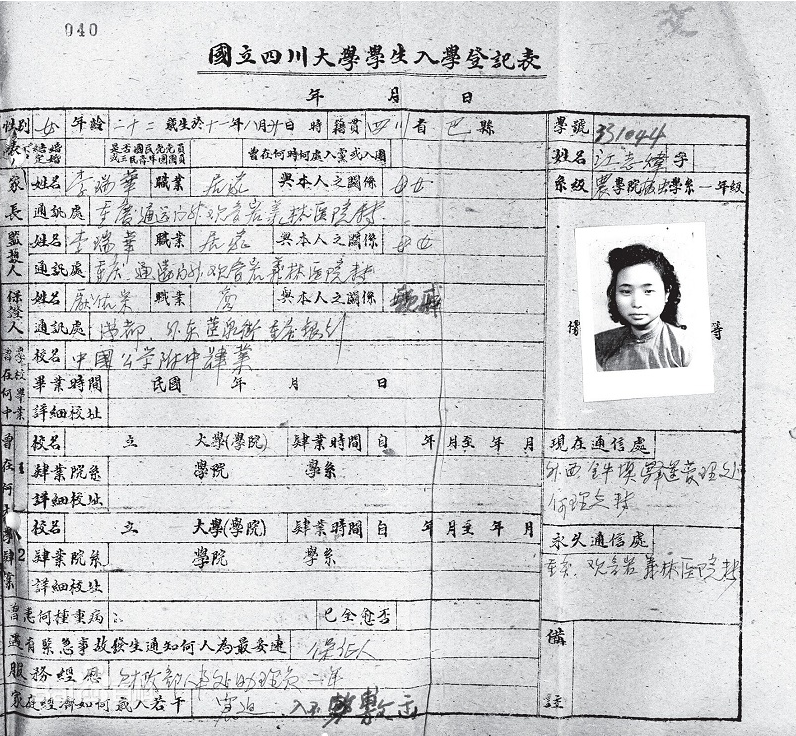 040
國立四川大學學生入學登記表
年 月 日
性別 女 年齡 二十二 歲生於十一年八月廿日 時 籍貫 四川省 巴縣
是否國民黨黨員或三民青年團團員 曾在何時何處入黨或入團
家長 姓名 李瑞華 職業 居家 與本人之關係 母女
通訊處 重慶通远门外观音岩義林医院转
監護人 姓名 李瑞華 職業 居家 與本人之關係 母女
通訊處 重庆通遠门外观音岩義林医院转
保證人 姓名 職業 商 與本人之關係 親戚
通訊處 成都 外东
校名 中國公学附中肄業
畢業時間 民國 年 月 日
詳細校址
曾在何大學肄業
1 校名 立 大學(學院) 肄業時間 自 年 月至 年 月
肄業院系 學院 學系
詳細校址
2 校名 立 大學(學院) 肄業時間 自 年 月至 年 月
肄業院系 學院 學系
詳細校址
曾患何種重病 已全愈否
遇有緊急事故發生通知何人為最妥速 保証人
服務經歷 財政部人事处助理員二年
家庭經濟如何歲入若干 窘迫 入不敷
學號 331044
姓名 江志煒 字
系級 農學院 學系一年級
等
現在通信處
外西
永久通信處
重庆观音岩義林医院转
備註